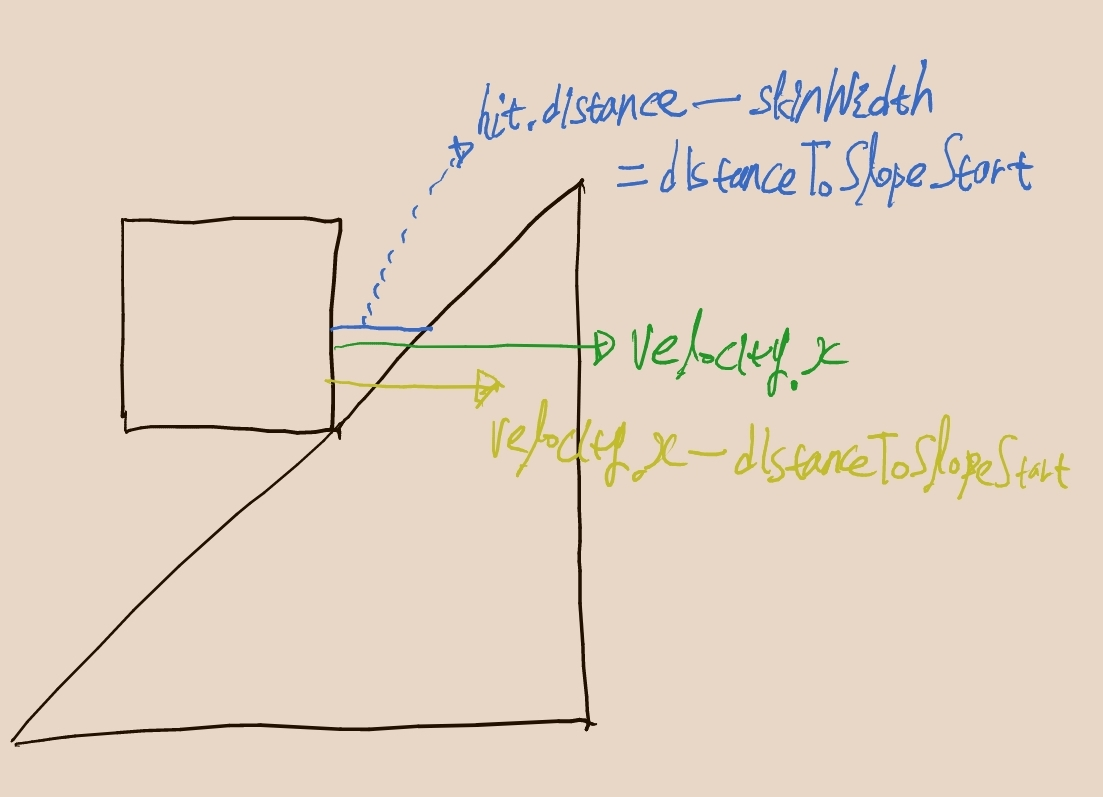 hit.distance - skinWidth
= distanceToSlopeStart
velocity.x
velocity.x - distanceToSlopeStart